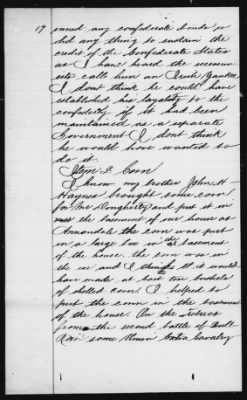 17 owned any confederate bonds or
did any thing to sustain the
credit of the Confederate States
as I have heard the
call him an Irish Yankee
I dont think he could have
established his loyalty to the
confederacy if it had been
maintained as a separate
Government I dont think
he would have wanted to
do it.
Item 2. Corn
I know my brother John H
Haynes brought some corn
for Mr Dougherty and put it in
the basement of our house at
Annandale the corn was put
in a large box in the basement
of the house. the corn was in
the ear and I think it would
have made at least ten bushels
of shelled corn. I helped to
put the corn in the basement
of the house. On the retreat
from the second battle of Bull
Run some Union Cavalry